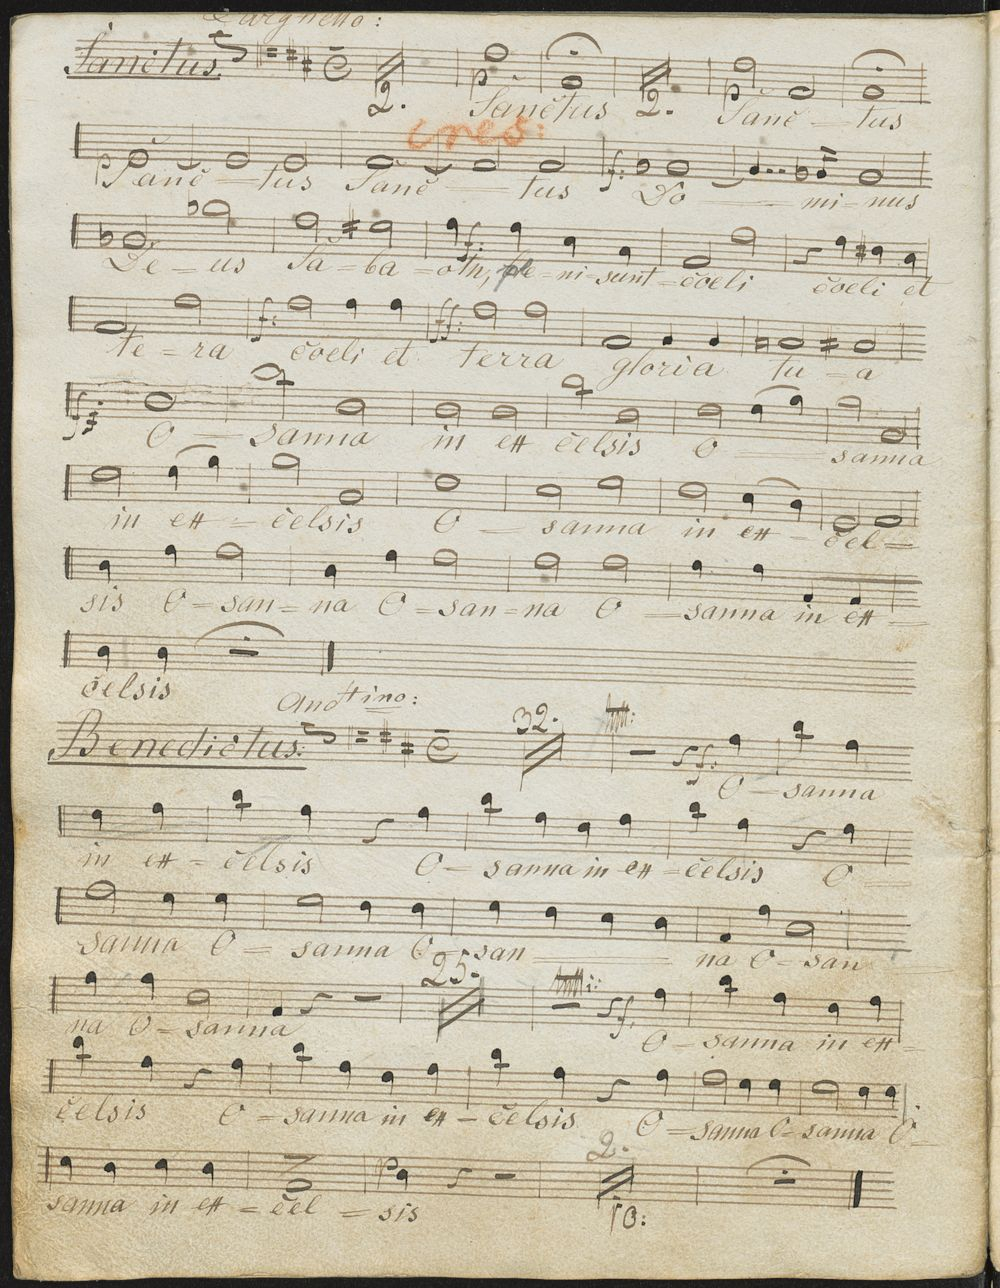 Larghetto:
Sanctus
2. Sanctus 2. Sanc - tus
cres:
Sanc - tus Sanc - tus Do - mi - nus
De - us Sa - ba - oth, ple - ni - sunt - coeli coeli et
te - ra coeli et terra gloria tu - a
O - sanna in ex celsis O - sanna
in ex - celsis O - sanna in ex - cel -
sis O - san - na O - san - na O - sanna in ex -
celsis
Andtino:
Benedictus: 32.
O - sanna
in ex - celsis O - sanna in ex - celsis O -
sanna O - sanna O - san - na O - san
25.
na O - sanna O - sanna in ex -
celsis O - sanna in ex - celsis O - sanna O - sanna O -
2.
sanna in ex - cel - sis